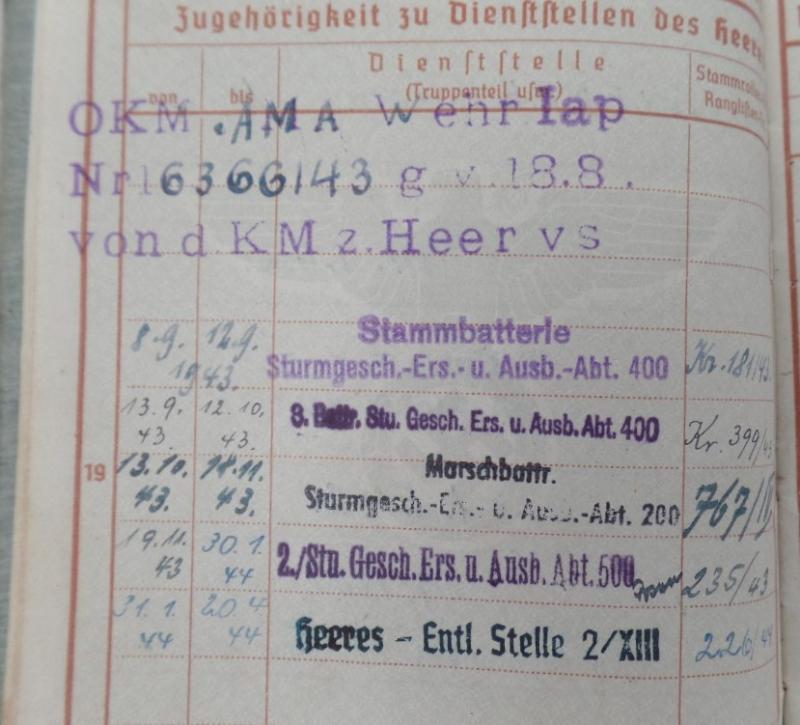 Zugehörigkeit zu Dienststellen des Heere
von bis Dienststelle (Truppenteil usw.) Stammrolle Ranglisten
OKM. AMA Wehr Iap
Nr 16366/43 g v. 18.8.
von d KM z. Heer vs
8.9. 12.9. 1943. Stammbatterie Sturmgesch.-Ers.- u. Ausb.-Abt. 400 Kr. 181/43
13.9. 43. 12.10. 43. 3. Battr. Stu. Gesch. Ers. u. Ausb. Abt. 400 Kr. 399/43
19 13.10. 43. 18.11. 43. Marschbattr. Sturmgesch.-Ers.- u. Ausb.-Abt. 200 767/III
19.11. 43 30.1. 44 2./Stu. Gesch. Ers. u. Ausb. Abt. 500 235/43
31.1. 44 20.4 44 Heeres - Entl. Stelle 2/XIII